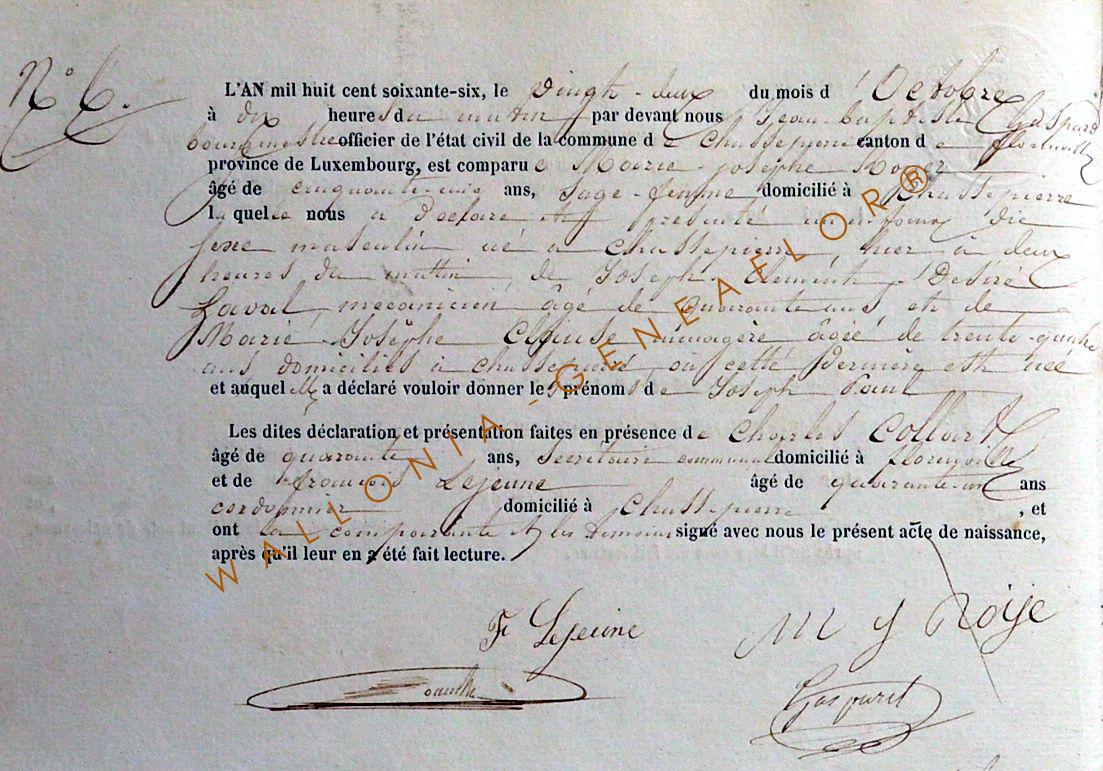 N° 6.
L'AN mil huit cent soixante-six, le vingt-deux du mois d'Octobre
à dix heures du matin par devant nous Jean-baptiste Gaspard
bourgmestre officier de l'état civil de la commune de Chassepierre canton de florenville
province de Luxembourg, est comparue Marie Josèphe
âgé de cinquante-cinq ans, Sage-femme domicilié à Chassepierre
laquelle nous a declaré et présenté un enfant du
sexe masculin né a chassepierre, hier à deux
heures du mattin, de Joseph Clément Desiré
Laval, mecanicien, âgé de quarante ans et de
Marie Josèphe Clause ménagère âgée de trente-quatre
ans domiciliés à chassepierre, où cette dernière est née
et auquel elle a déclaré vouloir donner les prénoms de Joseph Paul
Les dites déclaration et présentation faites en présence de Charles Collart
âgé de quarante ans, Secrétaire communal domicilié à florenville
et de françois Lejeune âgé de quarante-un ans
cordonnier domicilié à Chassepierre, et
ont la comparante et les témoins signé avec nous le présent acte de naissance,
après qu'il leur en a été fait lecture.
F Lejeune
M J Roije
Gaspard
WALLONIA-GENEAFLOR®